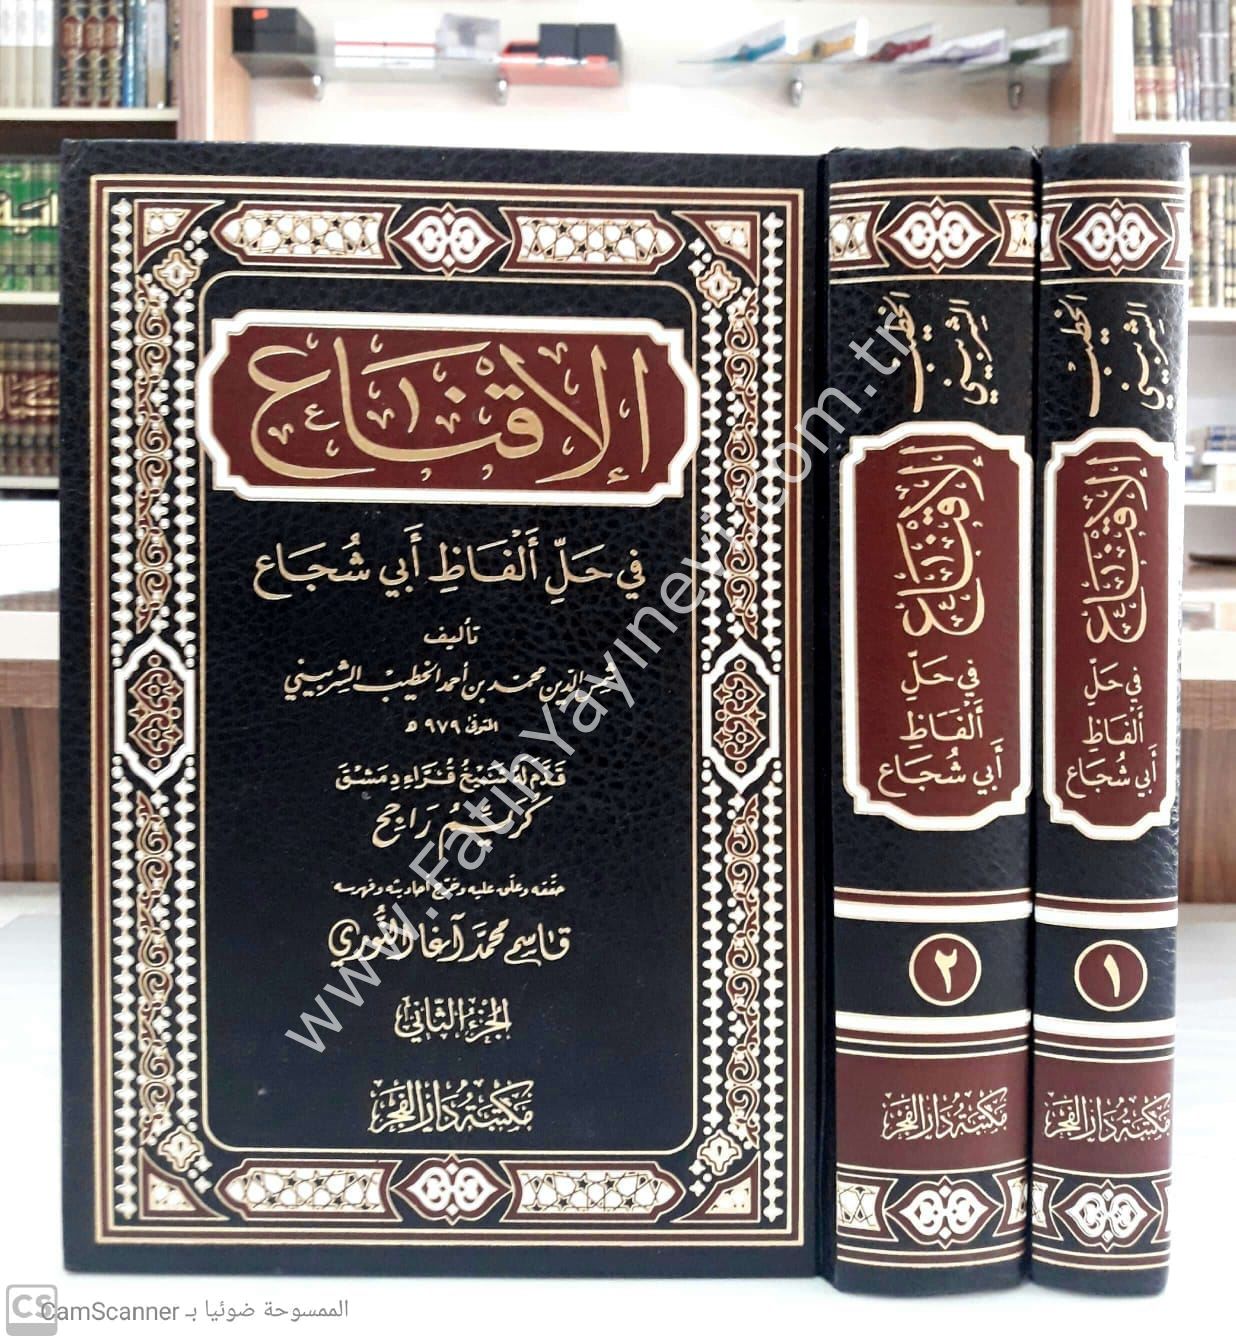 الإقناع
في حَلِّ أَلْفَاظِ أَبي شُجَاع
تأليف
شمس الدين محمد بن أحمد الخطيب الشربيني
المتوفى ٩٧٩ هـ
قدّم له شيخ قراء دمشق
كريّم راجح
حققه وعلق عليه وخرّج أحاديثه وفهرسه
قاسم محمّد آغا النوري
الجزء الثاني
مكتبة دار الفجر
الخطيب
الشربيني
الإقناع
في حَلِّ
أَلْفَاظِ
أَبي شُجَاع
٢
مكتبة دار الفجر
الخطيب
الشربيني
الإقناع
في حَلِّ
أَلْفَاظِ
أَبي شُجَاع
١
مكتبة دار الفجر
www.FatihYayinevi.com.tr
CS
الممسوحة ضوئيا بـ CamScanner